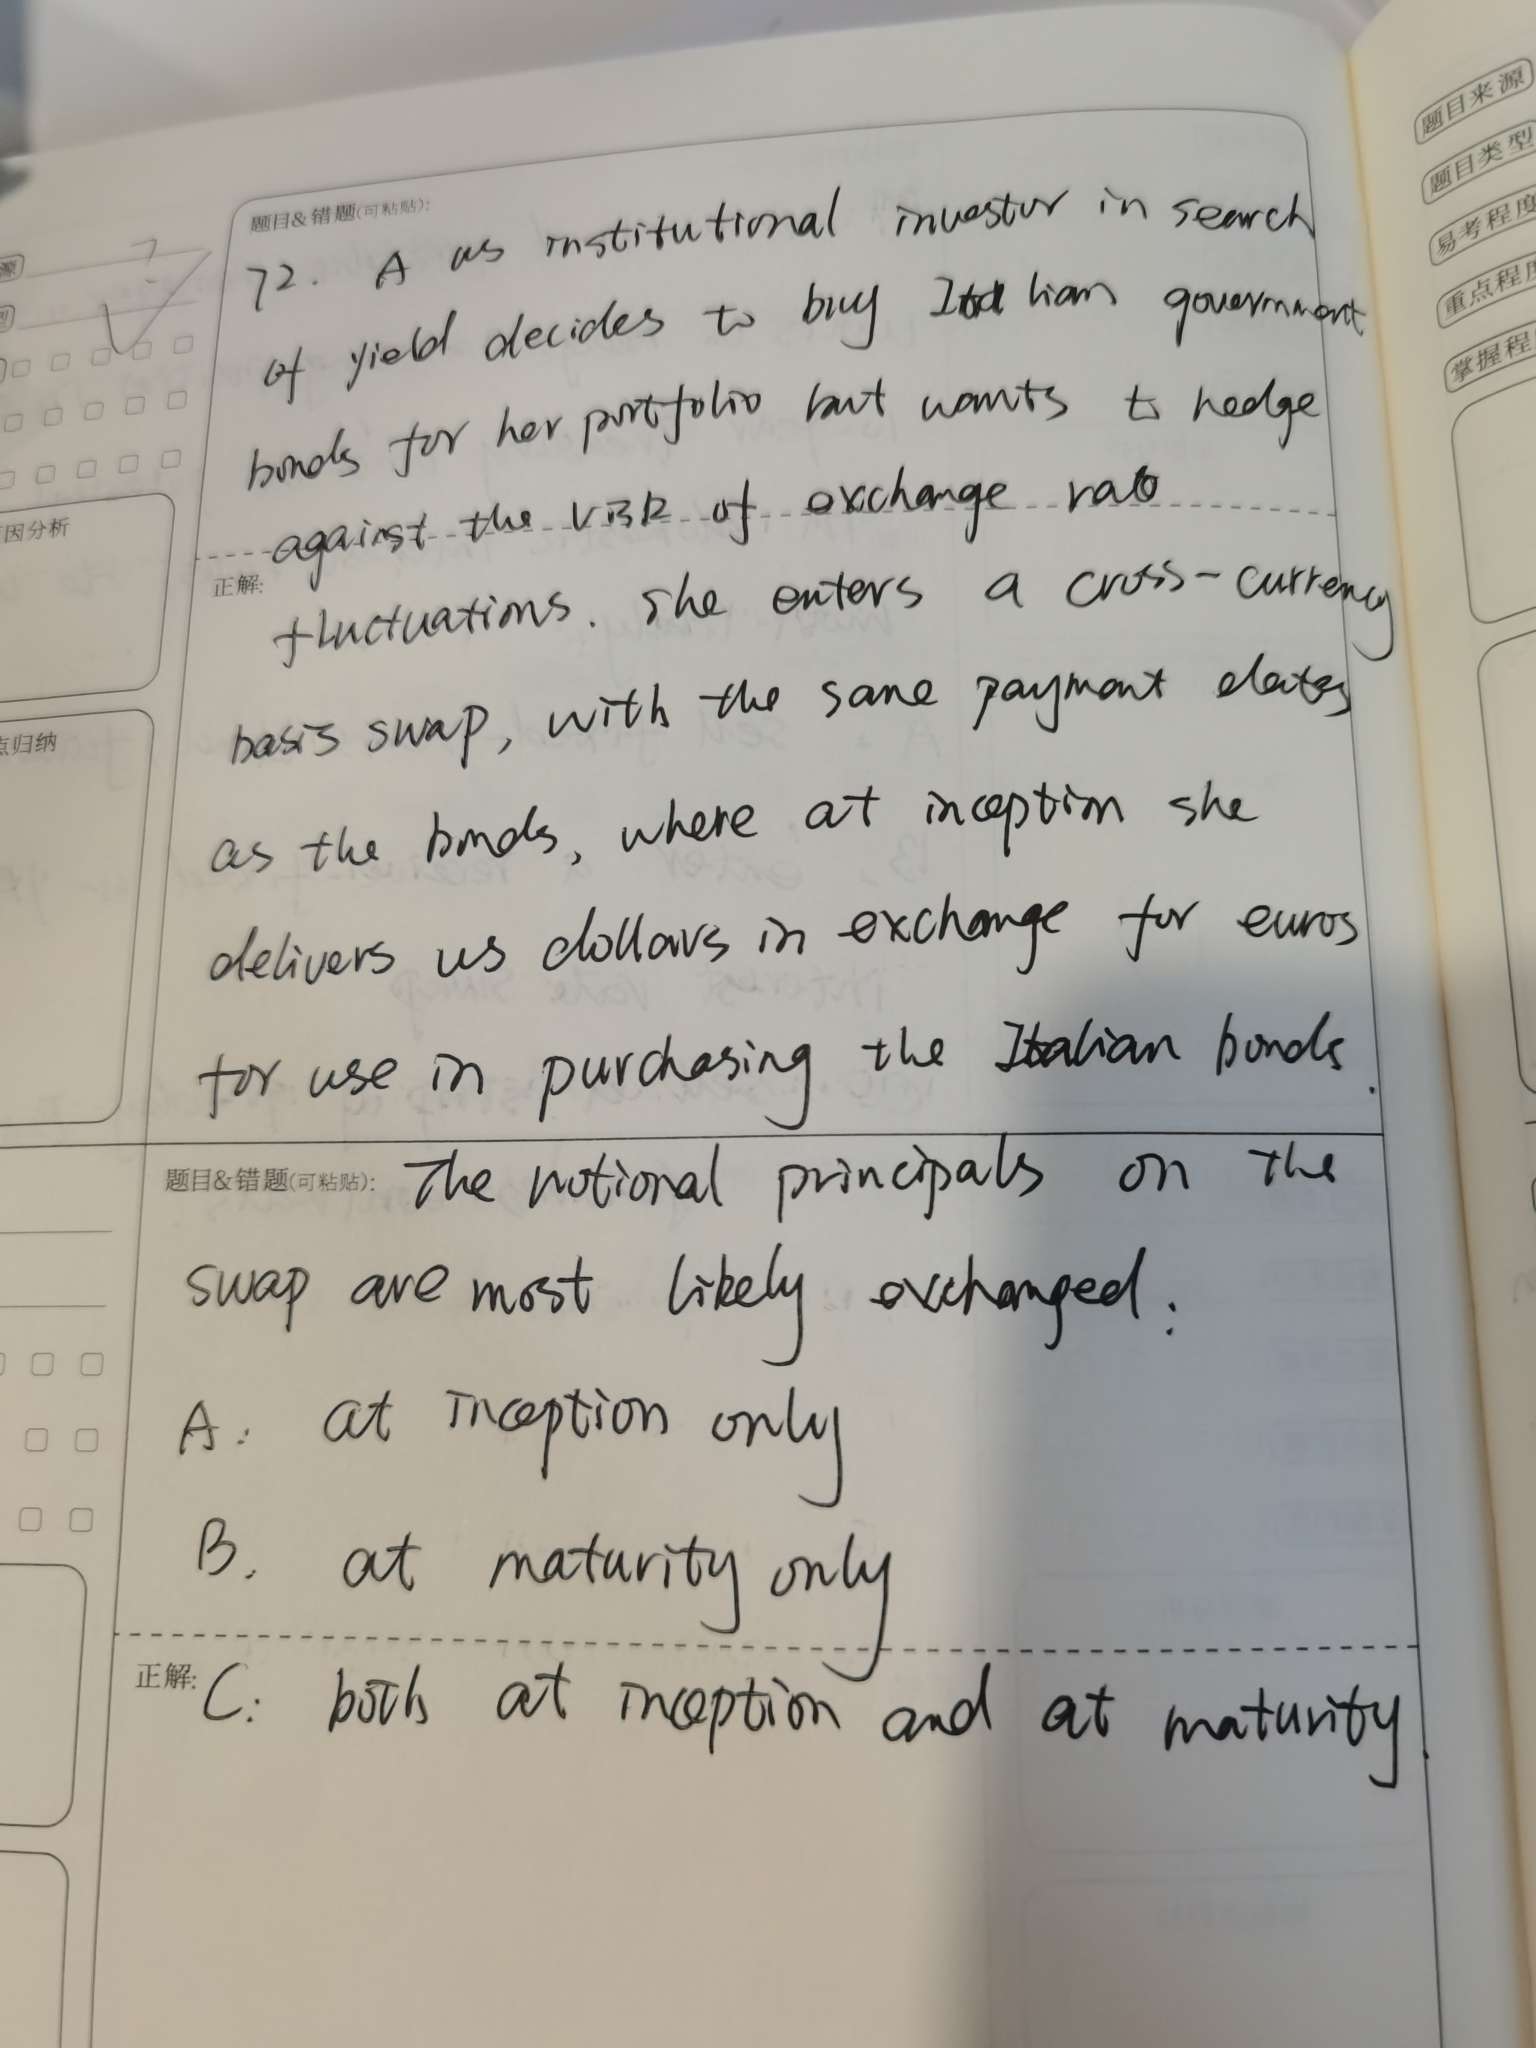 题目来源
题目类型
易考程度
重点程度
掌握程
源
型
题目&错题(可粘贴):
72. A as institutional investor in search
of yield decides to buy Italian government
bonds for her portfolio but wants to hedge
against the of exchange rate
正解:
fluctuations. she enters a cross-currency
basis swap, with the same payment dates
as the bonds, where at inception she
delivers us dollars in exchange for euros
for use in purchasing the Italian bonds.
因分析
点归纳
题目&错题(可粘贴): The notional principals on the
swap are most likely exchanged:
A: at inception only
B. at maturity only
正解: C: both at inception and at maturity.